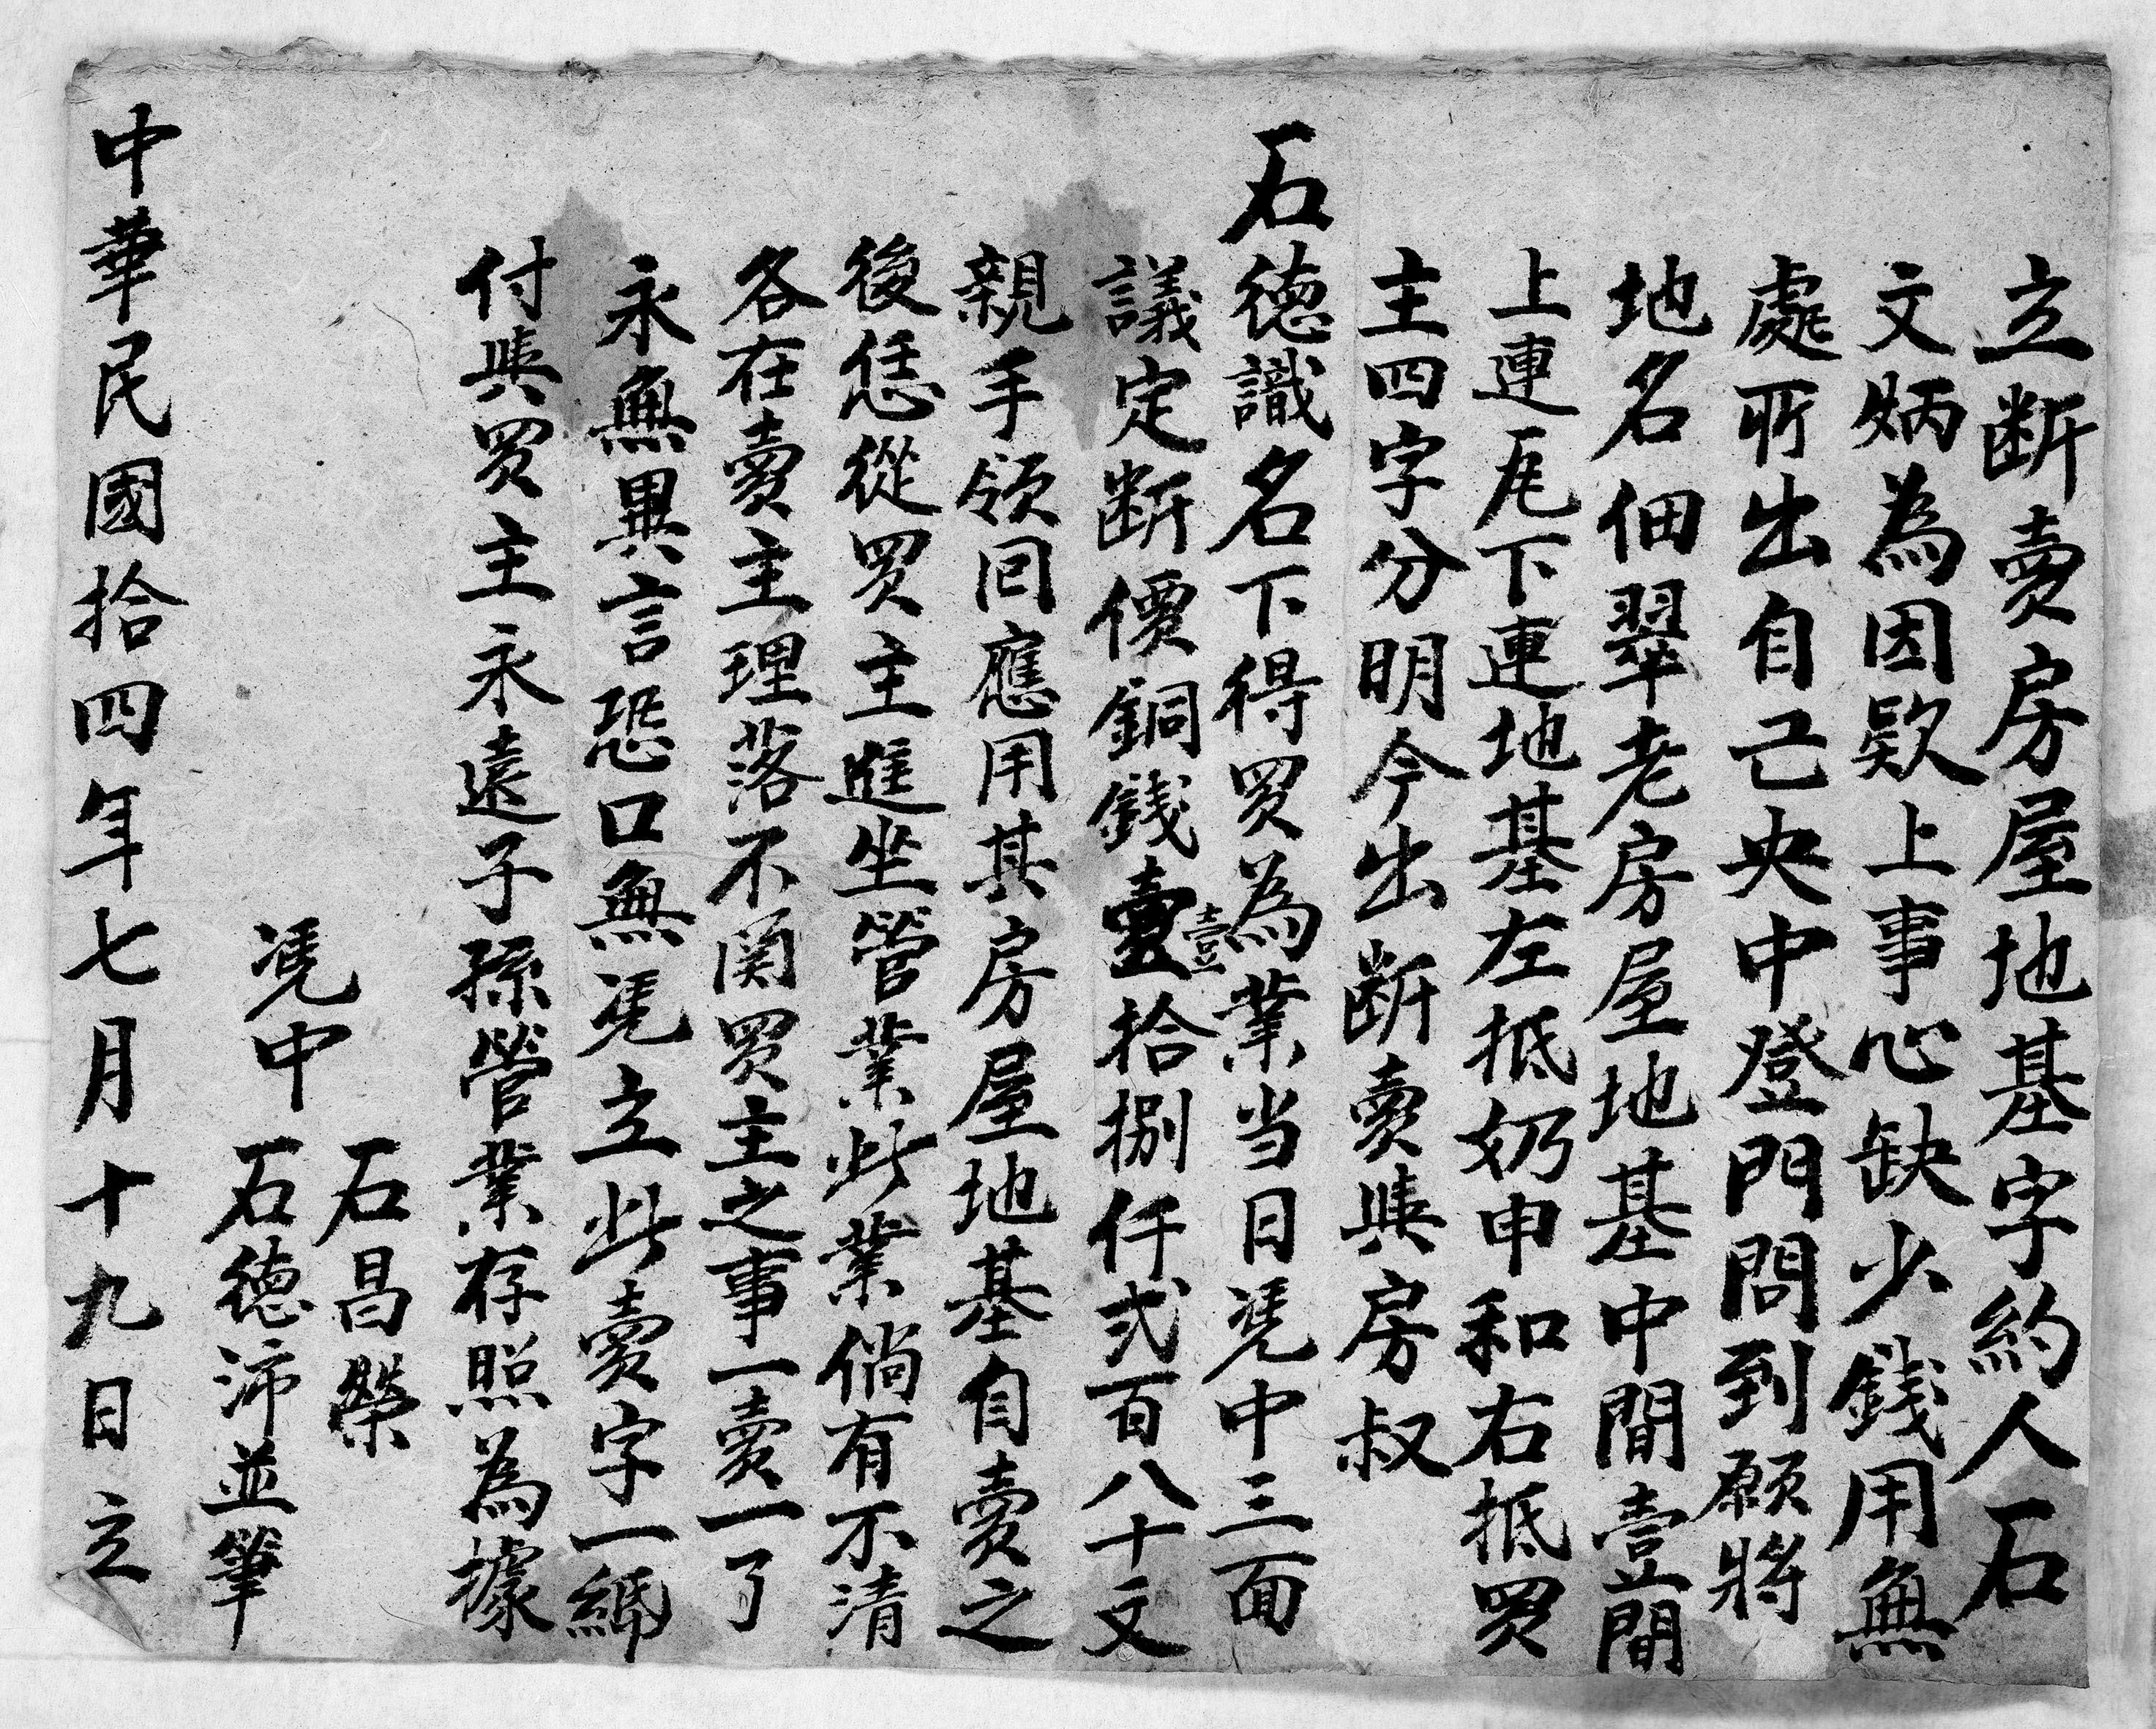 立断賣房屋地基字約人石
文炳為因欵上事心缺少錢用無
處所出自己央中登門問到願將
地名佃翠老房屋地基中間壹間
上連瓦下連地基左抵奶申和右抵買
主四字分明今出断賣與房叔
石德識名下得買為業当日凭中三面
議定断價銅錢壹拾捌仟弍百八十文
壹
親手領回應用其房屋地基自賣之
後恁從買主進坐營業此業倘有不清
各在賣主理落不関買主之事一賣一了
永無異言恐口無凭立此賣字一紙
付與買主永遠子孫營業存照為據
石昌榮
凭中
石德沛並筆
中華民國拾四年七月十九日立